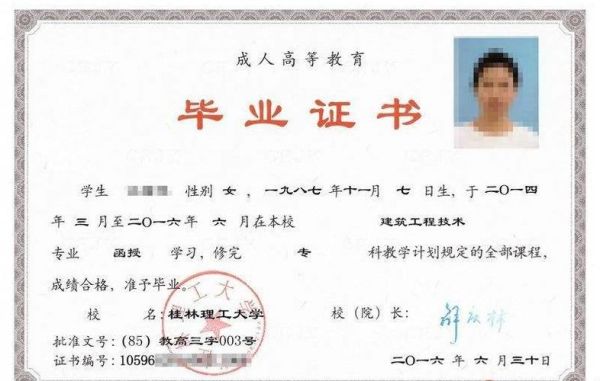 成人高等教育
毕业证书
学生 性别 女，一九八七年十一月 七 日生，于二〇一四
年 三 月至二〇一六年 六 月在本校 建筑工程技术
专业 函授 学习，修完 专 科教学计划规定的全部课程，
成绩合格，准予毕业。
校 名：桂林理工大学 校（院）长：
批准文号：(85) 教高三字003号
证书编号：10596 二〇一六年 六 月三十日